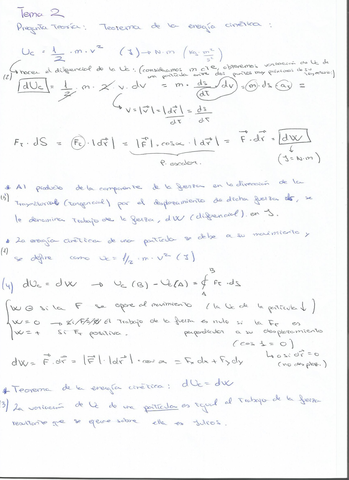 Tema 2
Pregunta Teoría: Teorema de la energía cinética:
Uc = 1/2 · m · v² (J) → N·m (kg · m²/s²)
(2) hacer el diferencial de la Uc: (consideramos m cte, obtenemos variación de Uc de
una partícula entre dos puntos muy próximos de su trayectoria)
dUc = 1/2 · m · 2 · v · dv = m · ds/dt · dv = m · ds · at =
v = |v⃗| = |dr⃗|/dt = ds/dt
Ft · dS = Ft · |dr⃗| = |F⃗| · cosα · |dr⃗| = F⃗ · dr⃗ = dW
P escalar.
(J = N·m)
* Al producto de la componente de la fuerza en la dirección de la
(5) trayectoria (tangencial) por el desplazamiento de dicha fuerza ds, se
lo denomina trabajo de la fuerza, dW (diferencial), en J.
* La energía cinética de una partícula se debe a su movimiento y
(1) se define como Uc = 1/2 · m · v² (J)
(4) dUc = dW → Uc(B) - Uc(A) = ∮ Ft · ds
W ⊖ si la F se opone al movimiento / la Uc de la partícula ↓
W = 0 → el trabajo de la fuerza es nulo si la Ft es
perpendicular a su desplazamiento
W = + si Ft positiva.
(cos 1 = 0)
↳ o si dr⃗ = 0
(no desplaz.)
dW = F⃗ · dr⃗ = |F⃗| · |dr⃗| · cos α = Fx dx + Fy dy
* Teorema de la energía cinética: dUc = dW
(3) La variación de Uc de una partícula es igual al trabajo de la fuerza
resultante que se ejerce sobre ella en Julios.